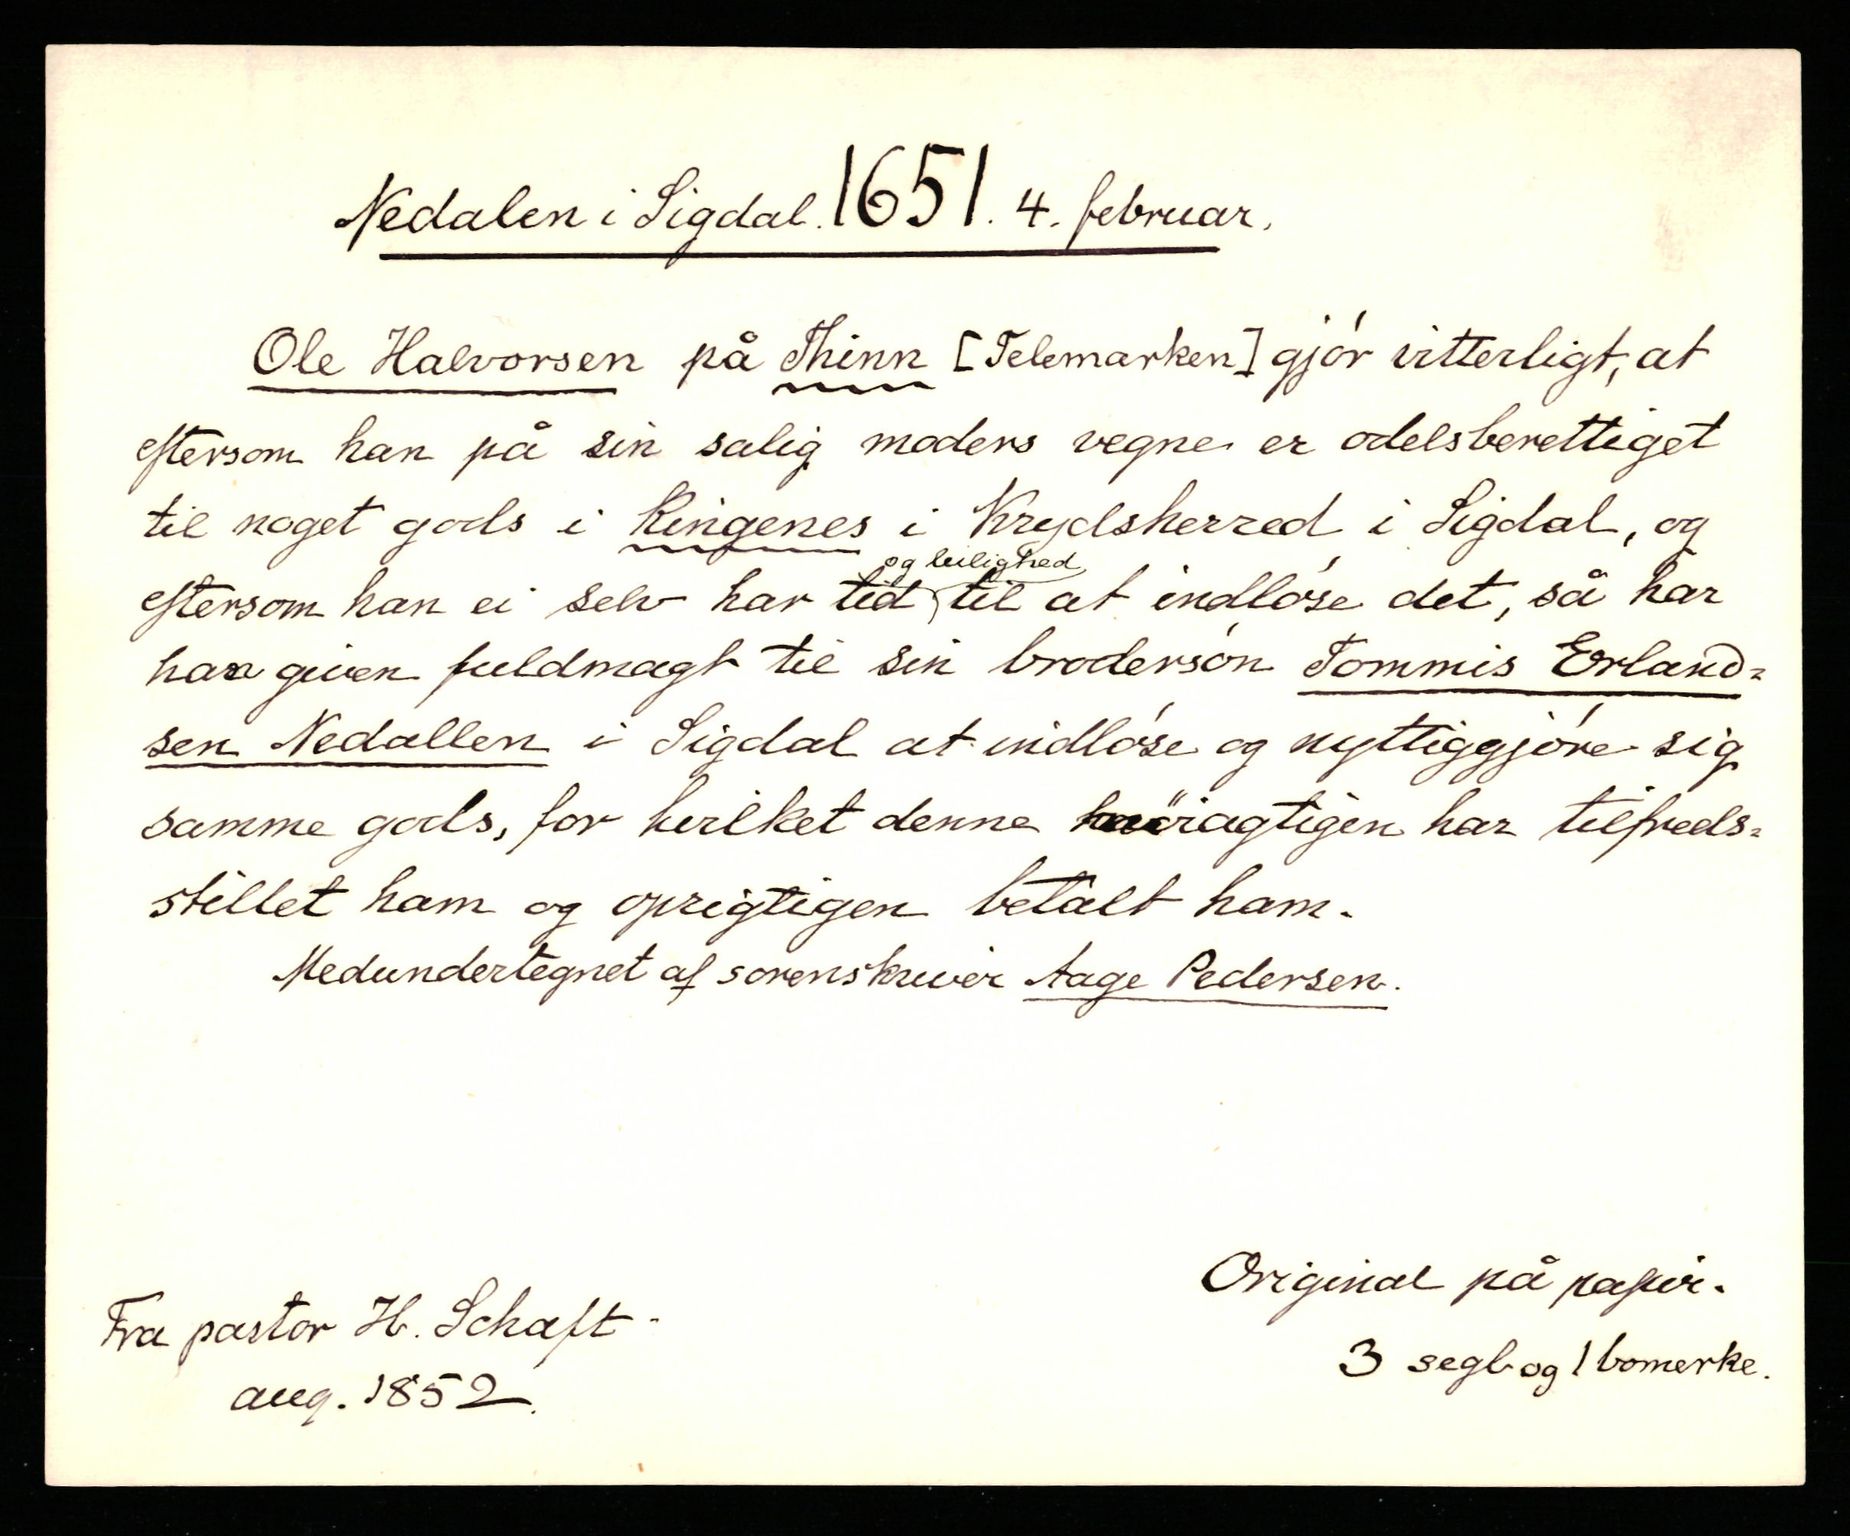 Nedalen i Sigdal. 1651. 4. februar.
Ole Halvorsen på Thinn [Telemarken] gjór vitterligt, at
eftersom han på sin salig moders vegne er odelsberettiget
til noget gods i Ringenes i Krydsherred i Sigdal, og
eftersom han ei selv har tid og leilighed til at indlóse det, så har
han given fuldmagt til sin brodersón Tommis Erland-
sen Nedallen i Sigdal at indlóse og nyttiggjóre sig
samme gods, for hvilket denne har tilfreds-
stillet ham og oprigtigen betalt ham.
Medundertegnet af sorenskriver Aage Pedersen.
Original på papir.
3 segl og 1 bomerke.
Fra pastor H. Schaft
aug. 1852.